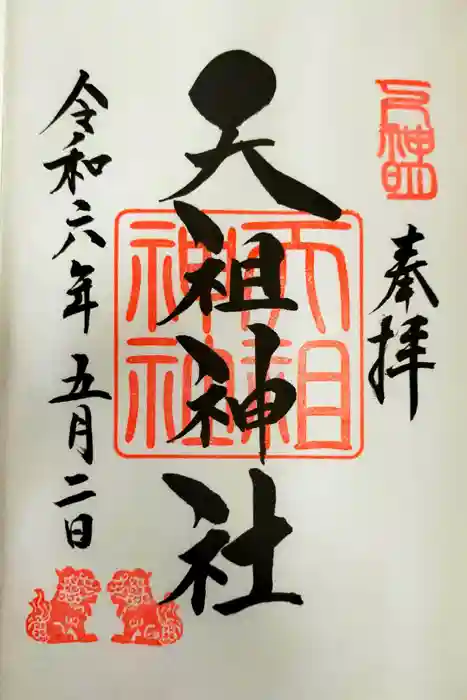 奉拝
天祖神社
天祖神社
令和六年五月二日